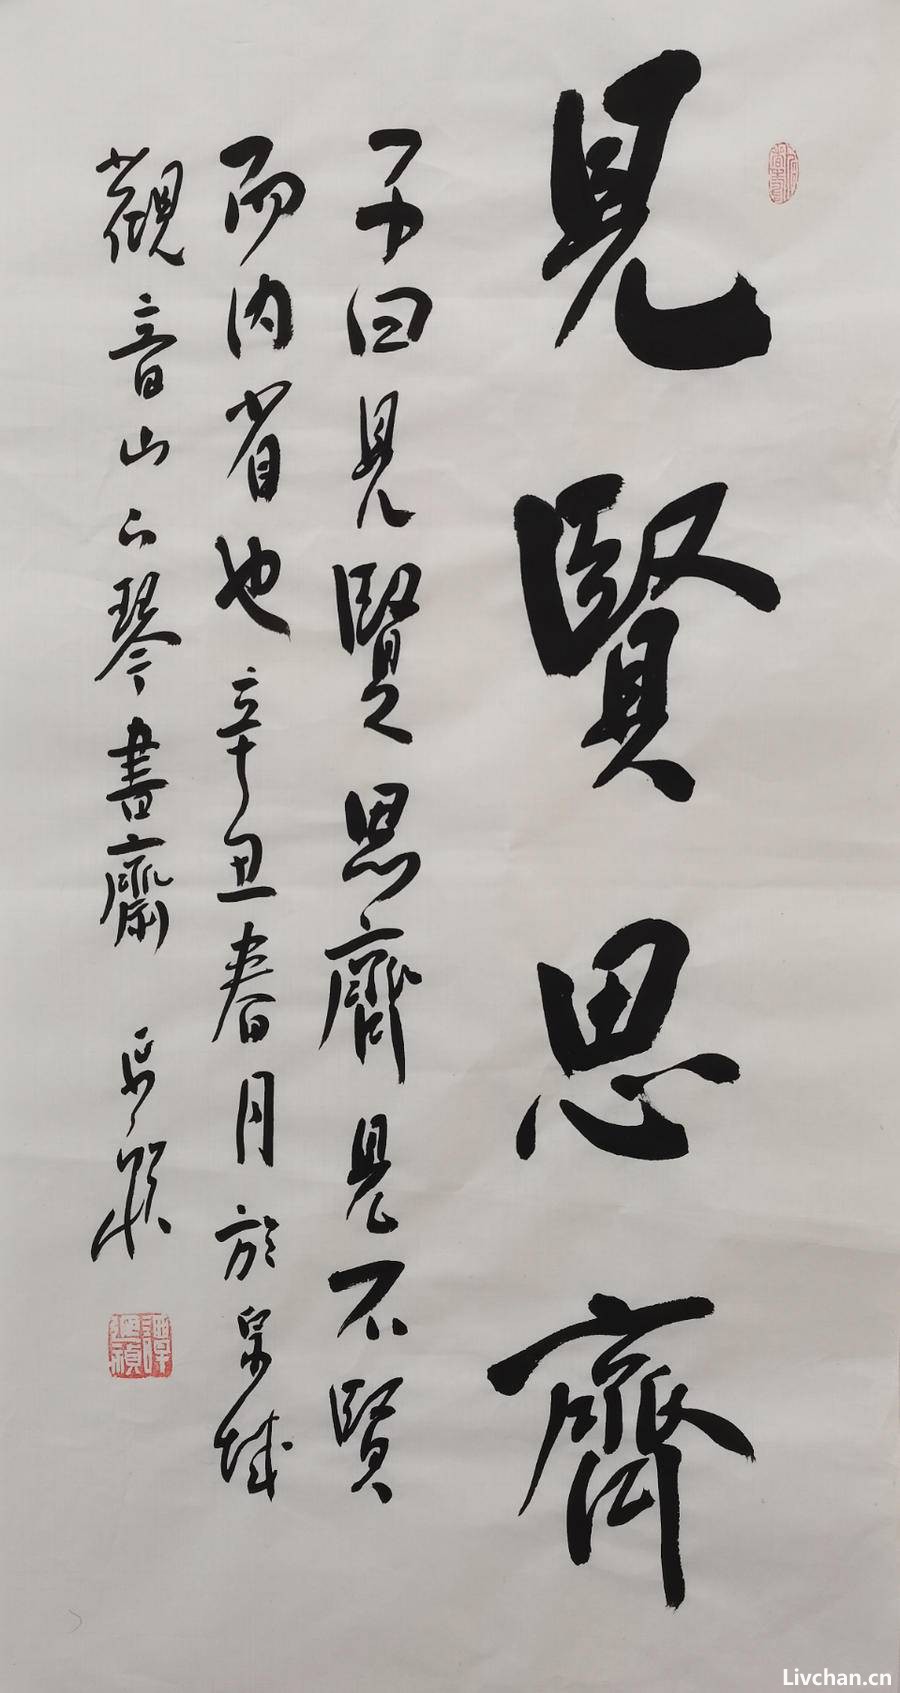 見賢思齊
子曰見賢思齊見不賢
而內省也辛丑春月於泉城
觀音山下琴書齋
Livchan.cn